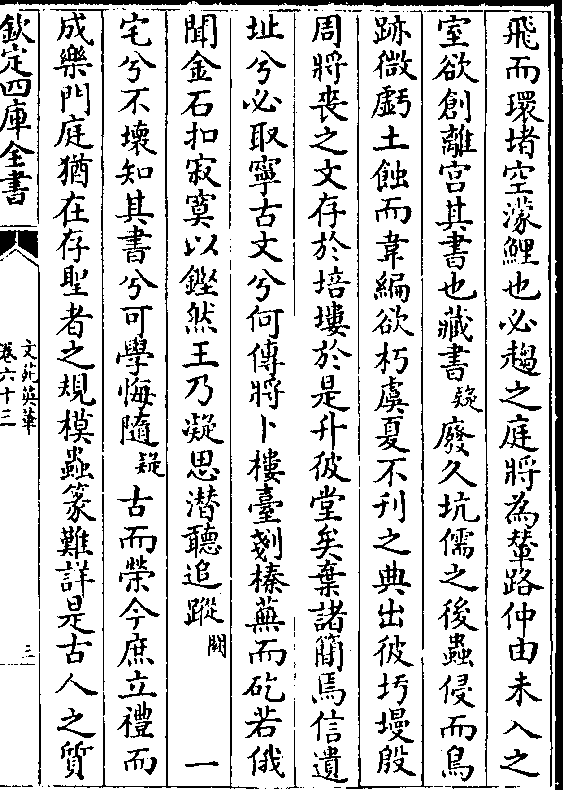 飛而環堵空濛鯉也必趨之庭將為輦路仲由未入之
室欲創離宮其書也藏書疑廢久坑儒之後蟲侵而鳥
跡微虧土蝕而韋編欲朽虞夏不刊之典出彼圬墁殷
周將喪之文存於培塿於是升彼堂矣棄諸簡焉信遺
址兮必取寧古文兮何傳將卜樓臺剗榛蕪而矻若俄
聞金石扣寂寞以鏗然王乃凝思潛聽追蹤闕一
宅兮不壞知其書兮可學悔隨疑古而榮今庶立禮而
成樂門庭猶在存聖者之規模蟲篆難詳是古人之質
欽定四庫全書
文苑英華
卷六十三
三